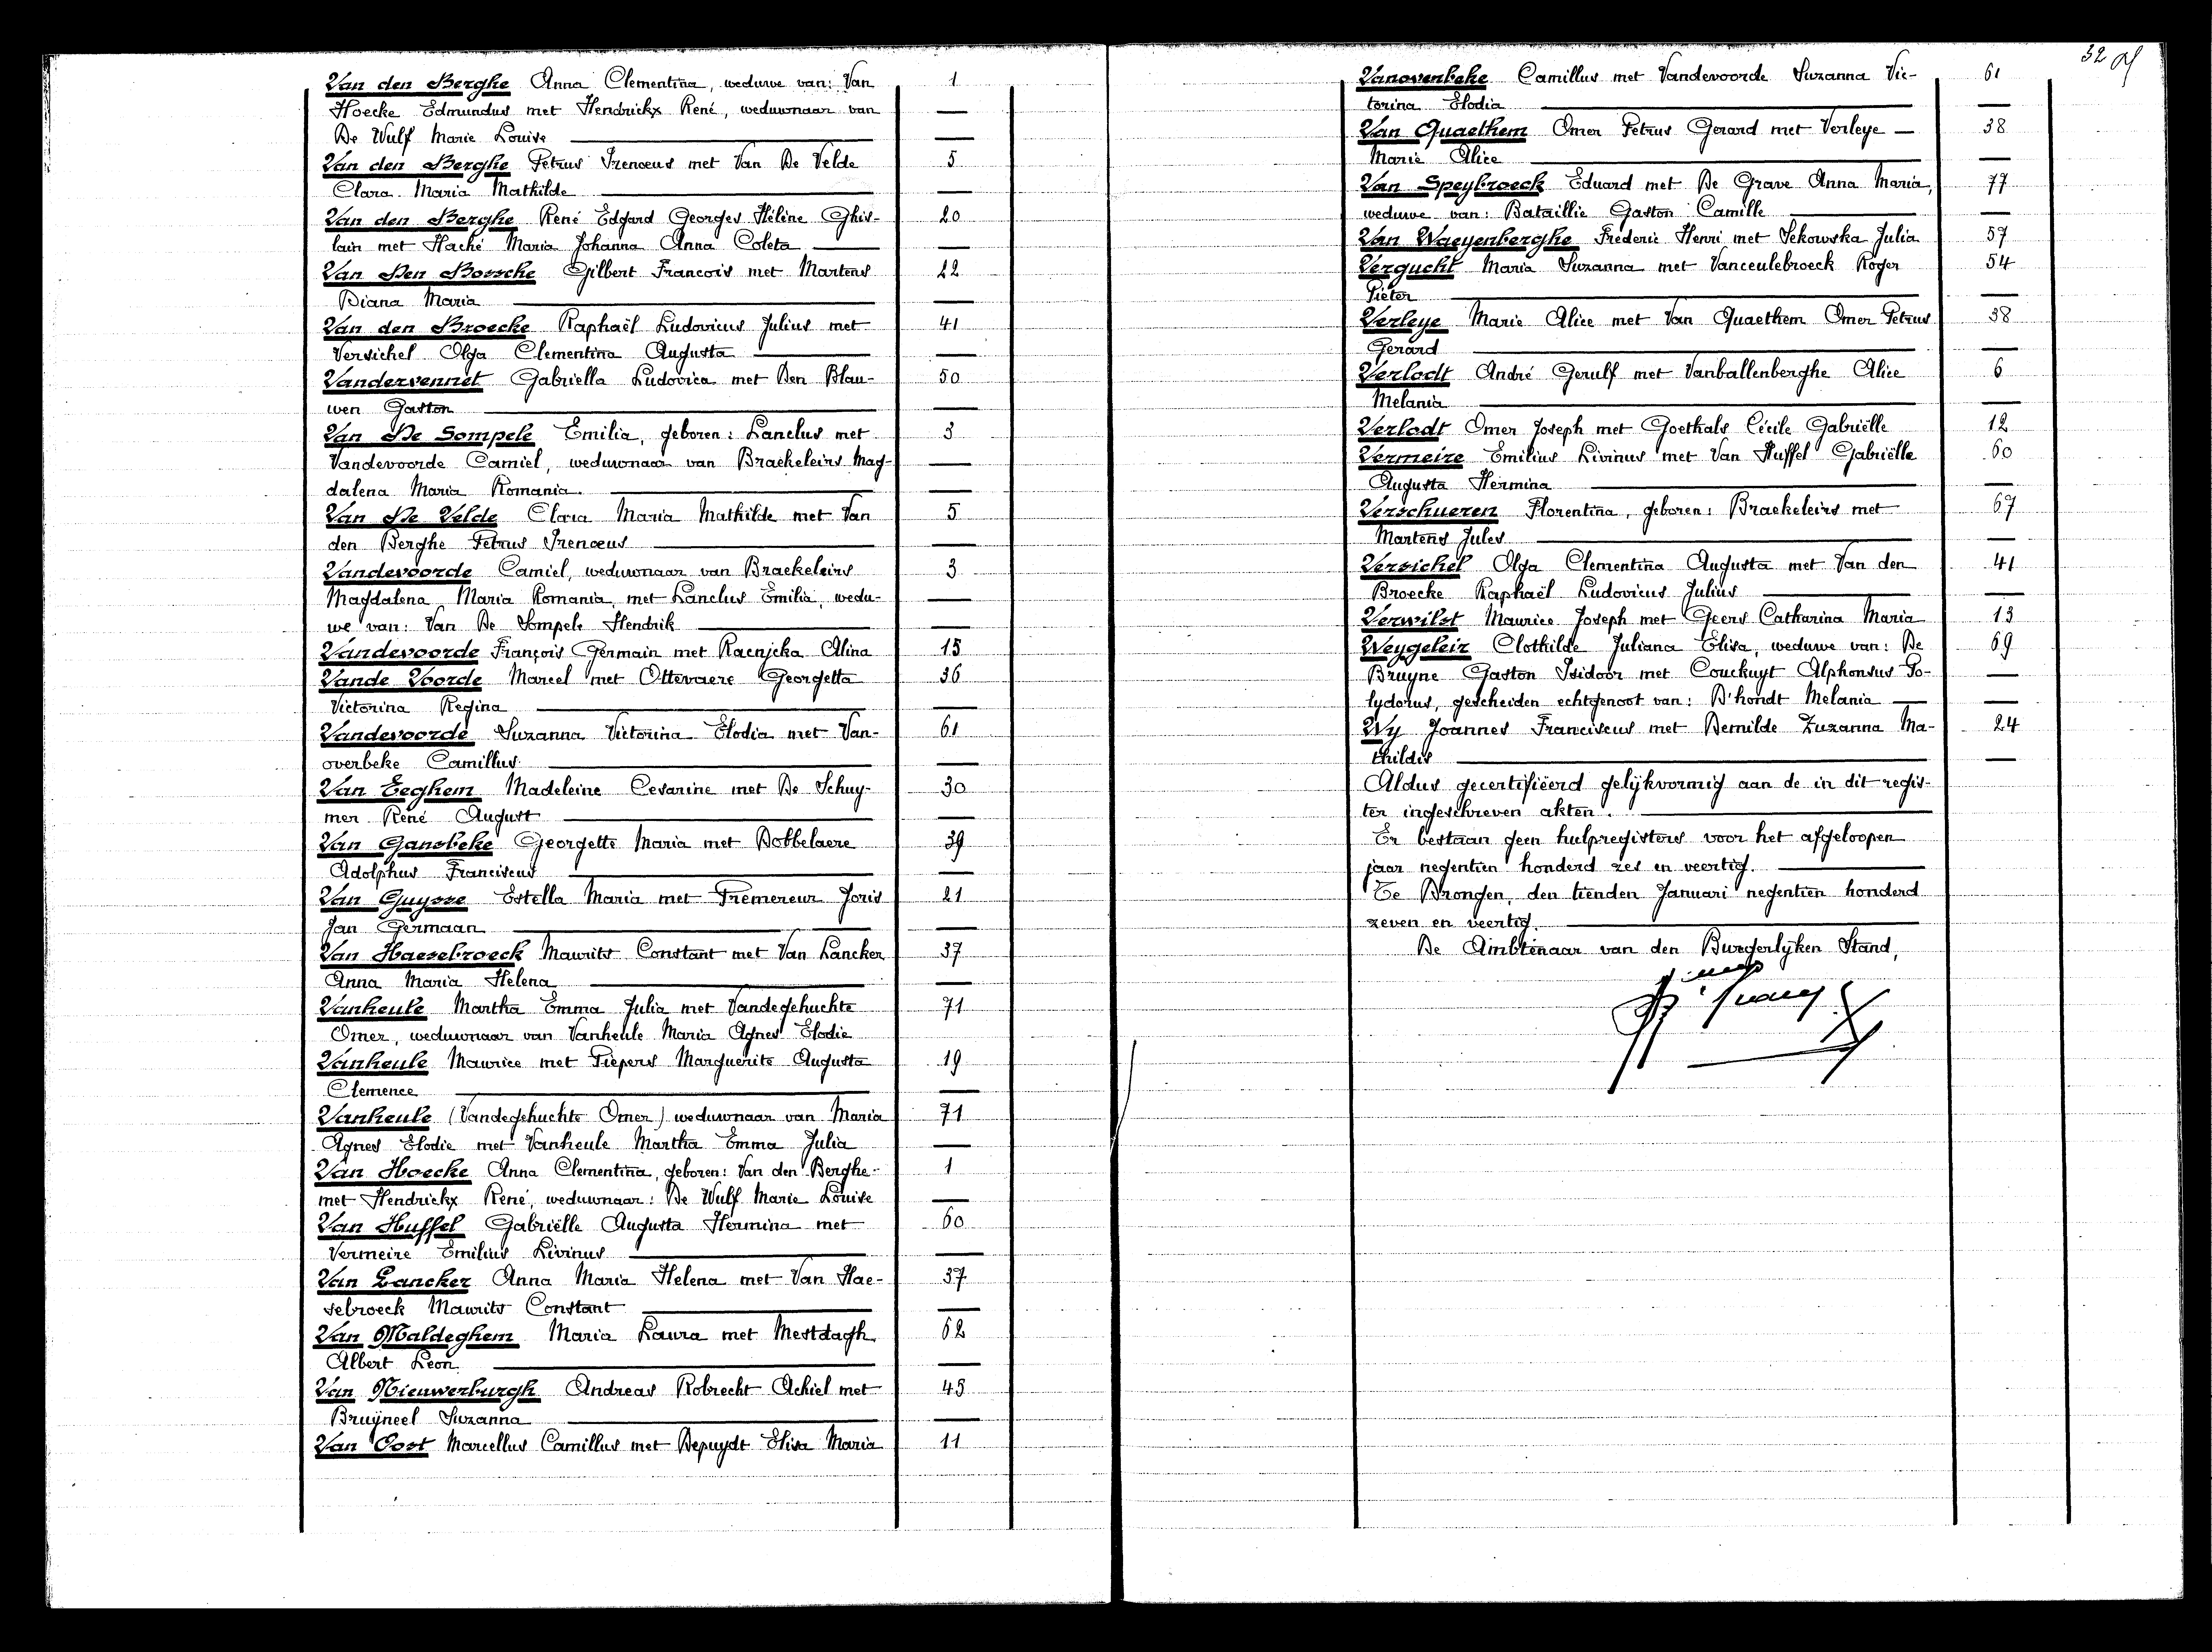 Van den Berghe Anna Clementina, weduwe van: Van 1
Hoecke Edmundus met Hendrickx René, weduwnaar van —
De Wulf Marie Louise —
Van den Berghe Petrus Irenœus met Van De Velde 5
Clara Maria Mathilde —
Van den Berghe René Edgard Georges Hélène Ghis- 20
lain met Haché Maria Johanna Anna Coleta —
Van Den Bossche Gilbert Francois met Martens 22
Diana Maria —
Van den Broecke Raphaël Ludovicus Julius met 41
Versichel Olga Clementina Augusta —
Vandervennet Gabriella Ludovica met Den Blau- 50
wen Gaston —
Van De Sompele Emilia, geboren: Lanclus met 3
Vandevoorde Camiel, weduwnaar van Braekeleirs Mag- —
dalena Maria Romania. —
Van De Velde Clara Maria Mathilde met Van 5
den Berghe Petrus Irenœus —
Vandevoorde Camiel, weduwnaar van Braekeleirs 3
Magdalena Maria Romania, met Lanclus Emilia, wedu- —
we van: Van De Sompele Hendrik —
Vandevoorde François Germain met Racnjcka Alina 15
Vande Voorde Marcel met Ottevaere Georgetta 36
Victorina Regina —
Vandevoorde Suzanna Victorina Elodia met Van- 61
overbeke Camillus. —
Van Eeghem Madeleine Cesarine met De Schuy- 30
mer René August —
Van Gansbeke Georgette Maria met Dobbelaere 39
Adolphus Franciscus —
Van Guysze Estella Maria met Fremereur Joris 21
Jan Germaan —
Van Haesebroeck Maurits Constant met Van Lancker 37
Anna Maria Helena —
Vanheule Martha Emma Julia met Vandegehuchte 71
Omer, weduwnaar van Vanheule Maria Agnes Elodie
Vanheule Maurice met Piepers Marguerite Augusta 19
Clemence —
Vanheule (Vandegehuchte Omer) weduwnaar van Maria 71
Agnes Elodie met Vanheule Martha Emma Julia —
Van Hoecke Anna Clementina, geboren: Van den Berghe 1
met Hendrickx René, weduwnaar: De Wulf Marie Louise —
Van Huffel Gabriëlle Augusta Hermina met 60
Vermeire Emilius Livinus —
Van Lancker Anna Maria Helena met Van Hae- 37
sebroeck Maurits Constant —
Van Maldeghem Maria Laura met Mestdagh 62
Albert Leon —
Van Nieuwerburgh Andreas Robrecht Achiel met 45
Bruyneel Suzanna —
Van Oost Marcellus Camillus met Depuydt Elisa Maria 11
32
Vanovenbeke Camillus met Vandevoorde Suzanna Vic- 61
torina Elodia —
Van Quaethem Omer Petrus Gerard met Verleye — 38
Marie Alice —
Van Speybroeck Eduard met De Grave Anna Maria, 77
weduwe van: Bataillie Gaston Camille —
Van Waeyenberghe Frederic Henri met Sekowska Julia 57
Vergucht Maria Suzanna met Vanceulebroeck Roger 54
Pieter —
Verleye Marie Alice met Van Quaethem Omer Petrus 38
Gerard —
Verlodt André Gerulf met Vanballenberghe Alice 6
Melania —
Verlodt Omer Joseph met Goethals Cécile Gabriëlle 12
Vermeire Emilius Livinus met Van Huffel Gabriëlle 60
Augusta Hermina —
Verschueren Florentina, geboren: Braekeleirs met 67
Martens Jules —
Versichel Olga Clementina Augusta met Van den 41
Broecke Raphaël Ludovicus Julius —
Verwilst Maurice Joseph met Geers Catharina Maria 13
Weygeleir Clothilde Juliana Elisa, weduwe van: De 69
Bruyne Gaston Isidoor met Couckuyt Alphonsus Po- —
lydorus, gescheiden echtgenoot van: D'hondt Melania —
Wy Joannes Franciscus met Demilde Zuzanna Ma- 24
thildis —
Aldus gecertifiëerd gelijkvormig aan de in dit regis-
ter ingeschreven akten.
Er bestaan geen hulpregisters voor het afgeloopen
jaar negentien honderd zes en veertig.
Te Drongen, den tienden Januari negentien honderd
zeven en veertig.
De Ambtenaar van den Burgerlyken Stand,